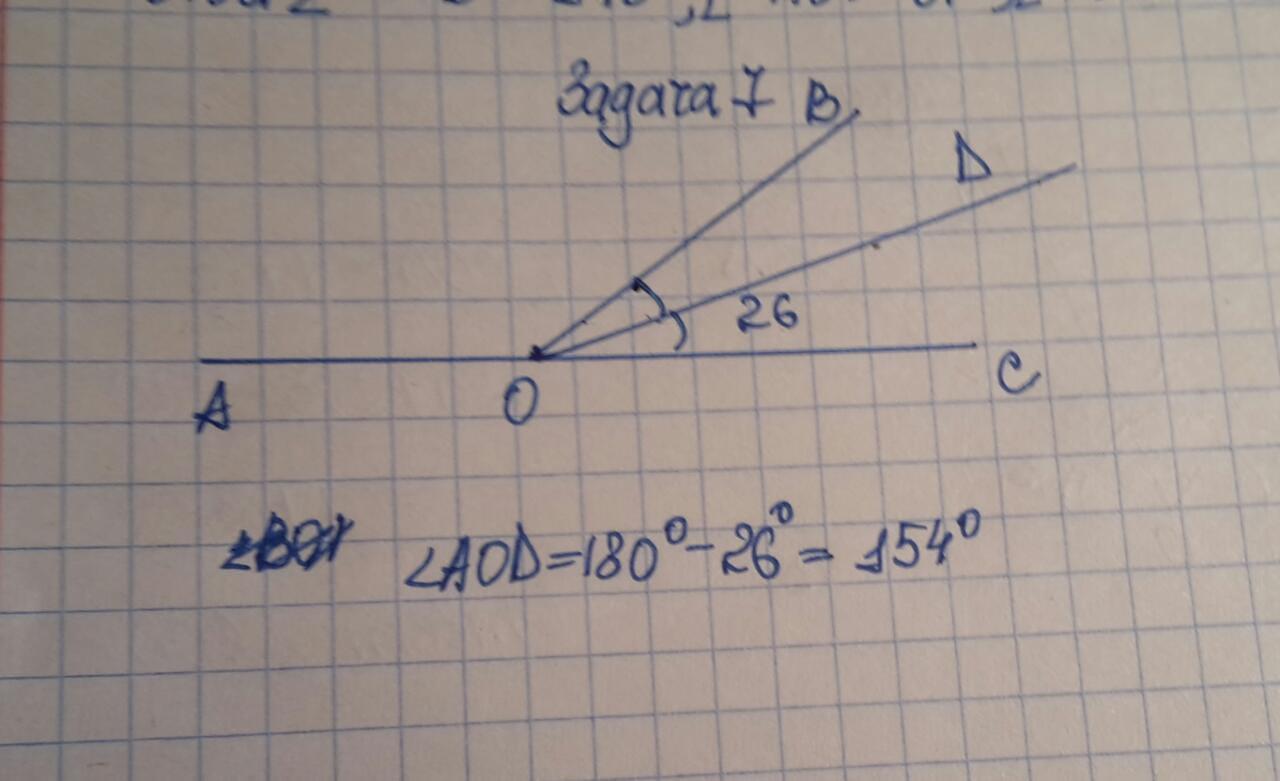 Задача 7 B
D
26
A O C
∠AOD=180°-26°= 154°